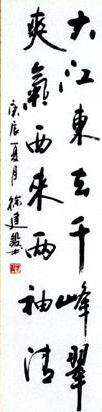 大江東去千峰翠
爽氣西來兩袖清
庚辰夏月徐建毅